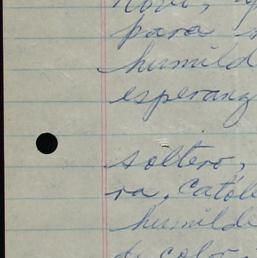 para
humild
esperanz
soltero,
ra, Catól
humilde
de color